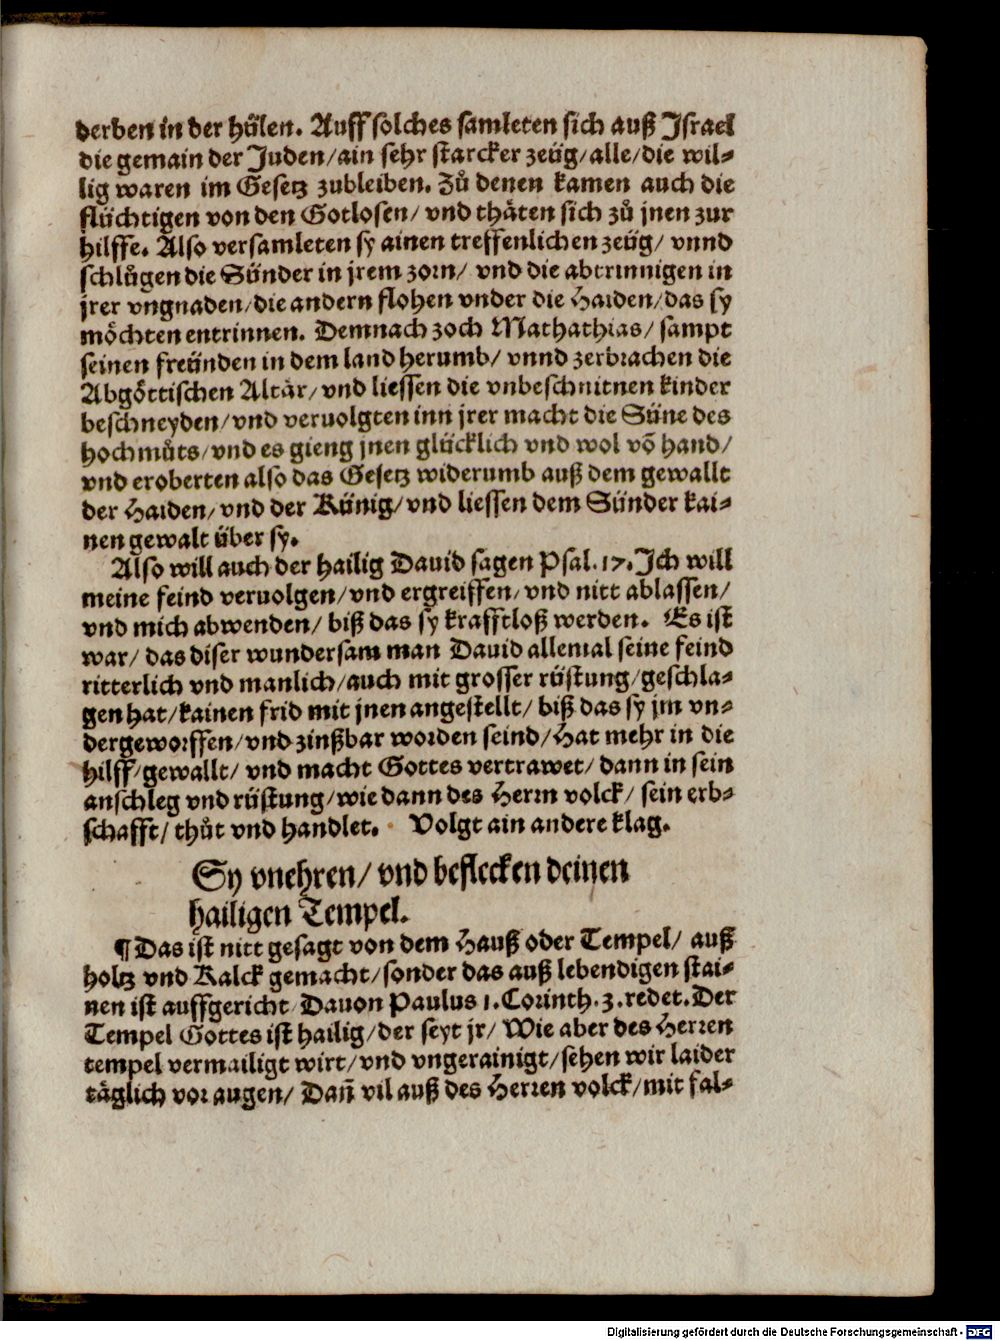 derben in der hülen. Auff solches samleten sich auß Jsrael
die gemain der Juden/ain sehr starcker zeüg/alle/die wil⸗
lig waren im Gesetz zubleiben. Zů denen kamen auch die
flüchtigen von den Gotlosen/ vnd thäten sich zů jnen zur
hilffe. Also versamleten sy ainen treffenlichen zeüg/ vnnd
schlůgen die Sünder in jrem zorn/ vnd die abtrinnigen in
jrer vngnaden/die andern flohen vnder die Haiden/das sy
möchten entrinnen. Demnach zoch Mathathias/ sampt
seinen freünden in dem land herumb/ vnnd zerbrachen die
Abgöttischen Altär/vnd liessen die vnbeschnitnen kinder
beschneyden/vnd veruolgten inn jrer macht die Süne des
hochmůts/vnd es gieng jnen glücklich vnd wol võ hand/
vnd eroberten also das Gesetz widerumb auß dem gewallt
der Haiden/vnd der Künig/vnd liessen dem Sünder kai⸗
nen gewalt über sy.
Also will auch der hailig Dauid sagen Psal.17.Jch will
meine feind veruolgen/vnd ergreiffen/vnd nitt ablassen/
vnd mich abwenden/ biß das sy krafftloß werden. Es ist
war/ das diser wundersam man Dauid allemal seine feind
ritterlich vnd manlich/auch mit grosser rüstung/geschla⸗
gen hat/kainen frid mit jnen angestellt/ biß das sy jm vn⸗
dergeworffen/vnd zinßbar worden seind/Hat mehr in die
hilff/gewallt/ vnd macht Gottes vertrawet/ dann in sein
anschleg vnd rüstung/wie dann des Herrn volck/ sein erb⸗
schafft/ thůt vnd handlet. Volgt ain andere klag.
Sy vnehren/ vnd beflecken deinen
hailigen Tempel.
¶Das ist nitt gesagt von dem Hauß oder Tempel/ auß
holtz vnd Kalck gemacht/sonder das auß lebendigen stai⸗
nen ist auffgericht Dauon Paulus 1.Corinth.3.redet.Der
Tempel Gottes ist hailig/der seyt jr/ Wie aber des Herren
tempel vermailigt wirt/vnd vngerainigt/sehen wir laider
täglich vor augen/ Dañ vil auß des Herren volck/mit fal⸗
Digitalisierung gefördert durch die Deutsche Forschungsgemeinschaft - DFG